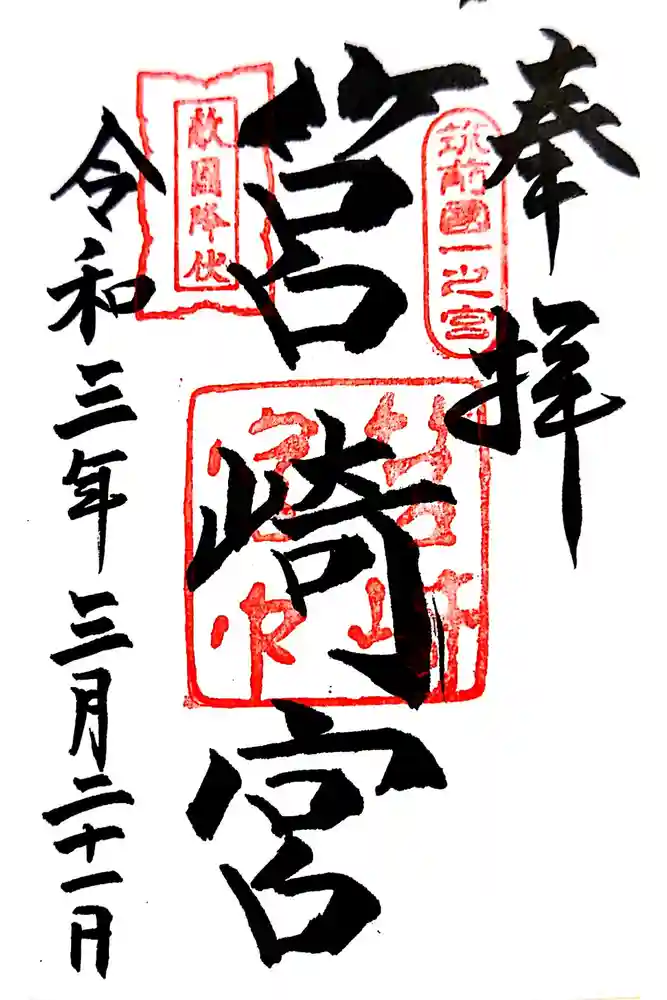 奉拝
筑前國一之宮
筥崎宮
筥崎宮印
敵國降伏
令和三年三月二十一日